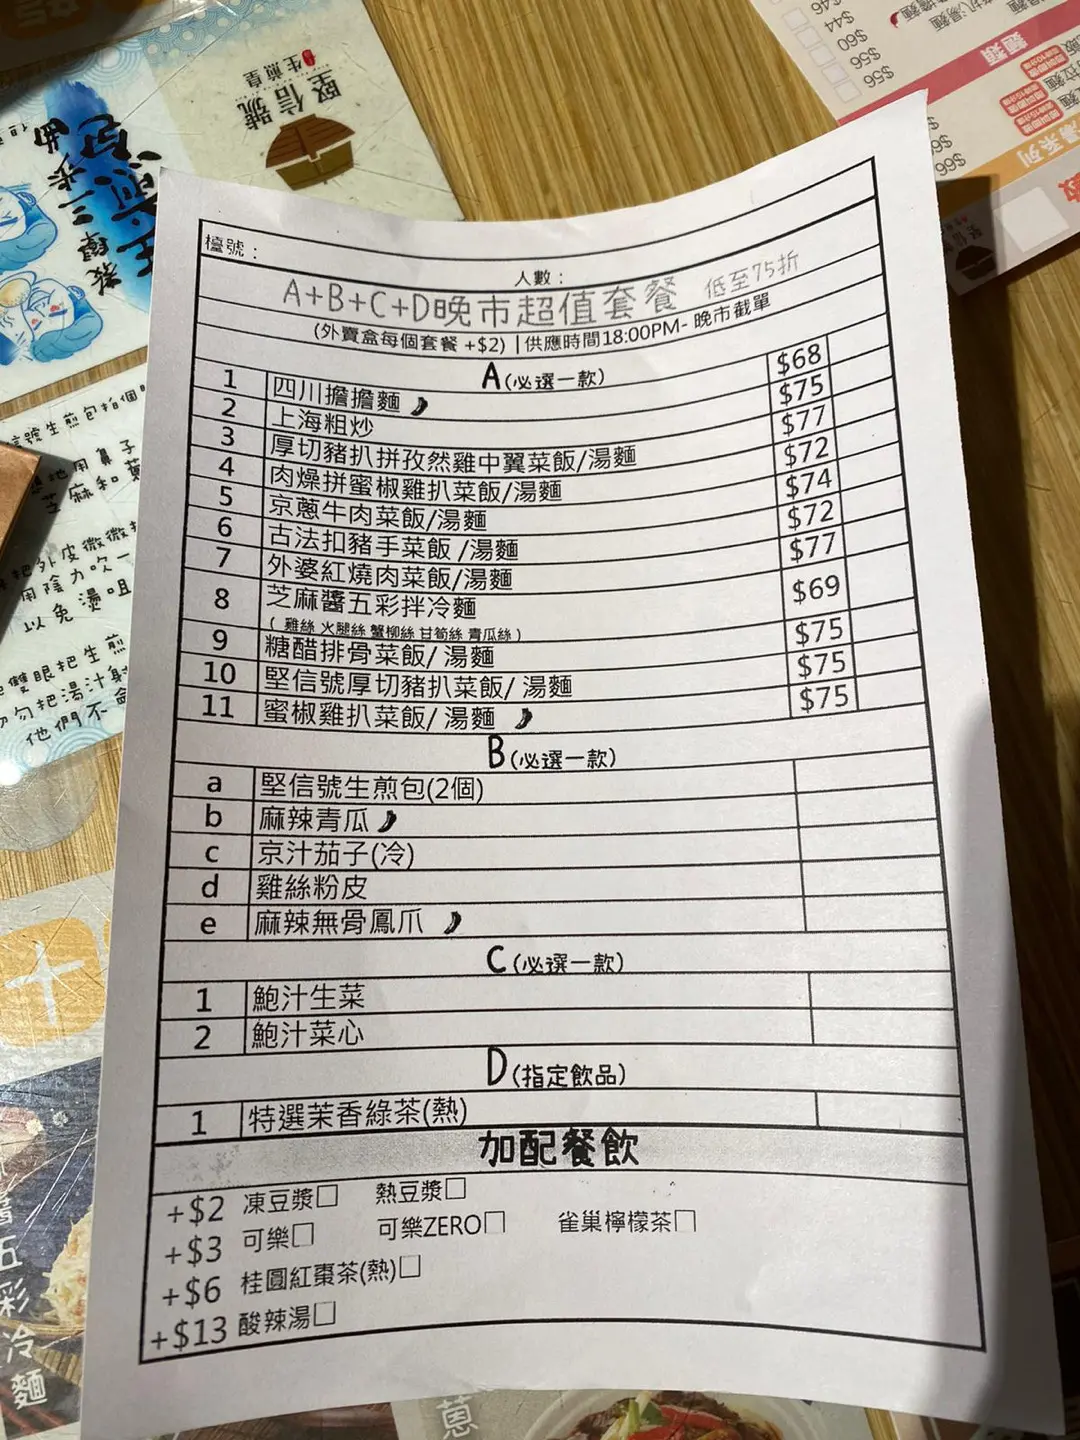 堅信號
生煎皇
檯號：
人數：
A+B+C+D晚市超值套餐 低至75折
(外賣盒每個套餐 +$2) | 供應時間18:00PM- 晚市截單
A(必選一款)
1 四川擔擔麵 $68
2 上海粗炒 $75
3 厚切豬扒拼孜然雞中翼菜飯/湯麵 $77
4 肉燥拼蜜椒雞扒菜飯/湯麵 $72
5 京蔥牛肉菜飯/湯麵 $74
6 古法扣豬手菜飯 /湯麵 $72
7 外婆紅燒肉菜飯/湯麵 $77
8 芝麻醬五彩拌冷麵 $69
( 雞絲 火腿絲 蟹柳絲 甘筍絲 青瓜絲 )
9 糖醋排骨菜飯/ 湯麵 $75
10 堅信號厚切豬扒菜飯/ 湯麵 $75
11 蜜椒雞扒菜飯/ 湯麵 $75
B(必選一款)
a 堅信號生煎包(2個)
b 麻辣青瓜
c 京汁茄子(冷)
d 雞絲粉皮
e 麻辣無骨鳳爪
C(必選一款)
1 鮑汁生菜
2 鮑汁菜心
D(指定飲品)
1 特選茉香綠茶(熱)
加配餐飲
+$2 凍豆漿☐ 熱豆漿☐
+$3 可樂☐ 可樂ZERO☐ 雀巢檸檬茶☐
+$6 桂圓紅棗茶(熱)☐
+$13 酸辣湯☐
號生煎包拍個
地用鼻子
芝麻和蔥
把外皮微微
用陰力吹一
以免燙咀
雙眼把生煎
勿把湯汁射
他們不會
醬五彩冷麵
蔥
麵類
湯系列
$46
$44
$60
$56
$56
$66